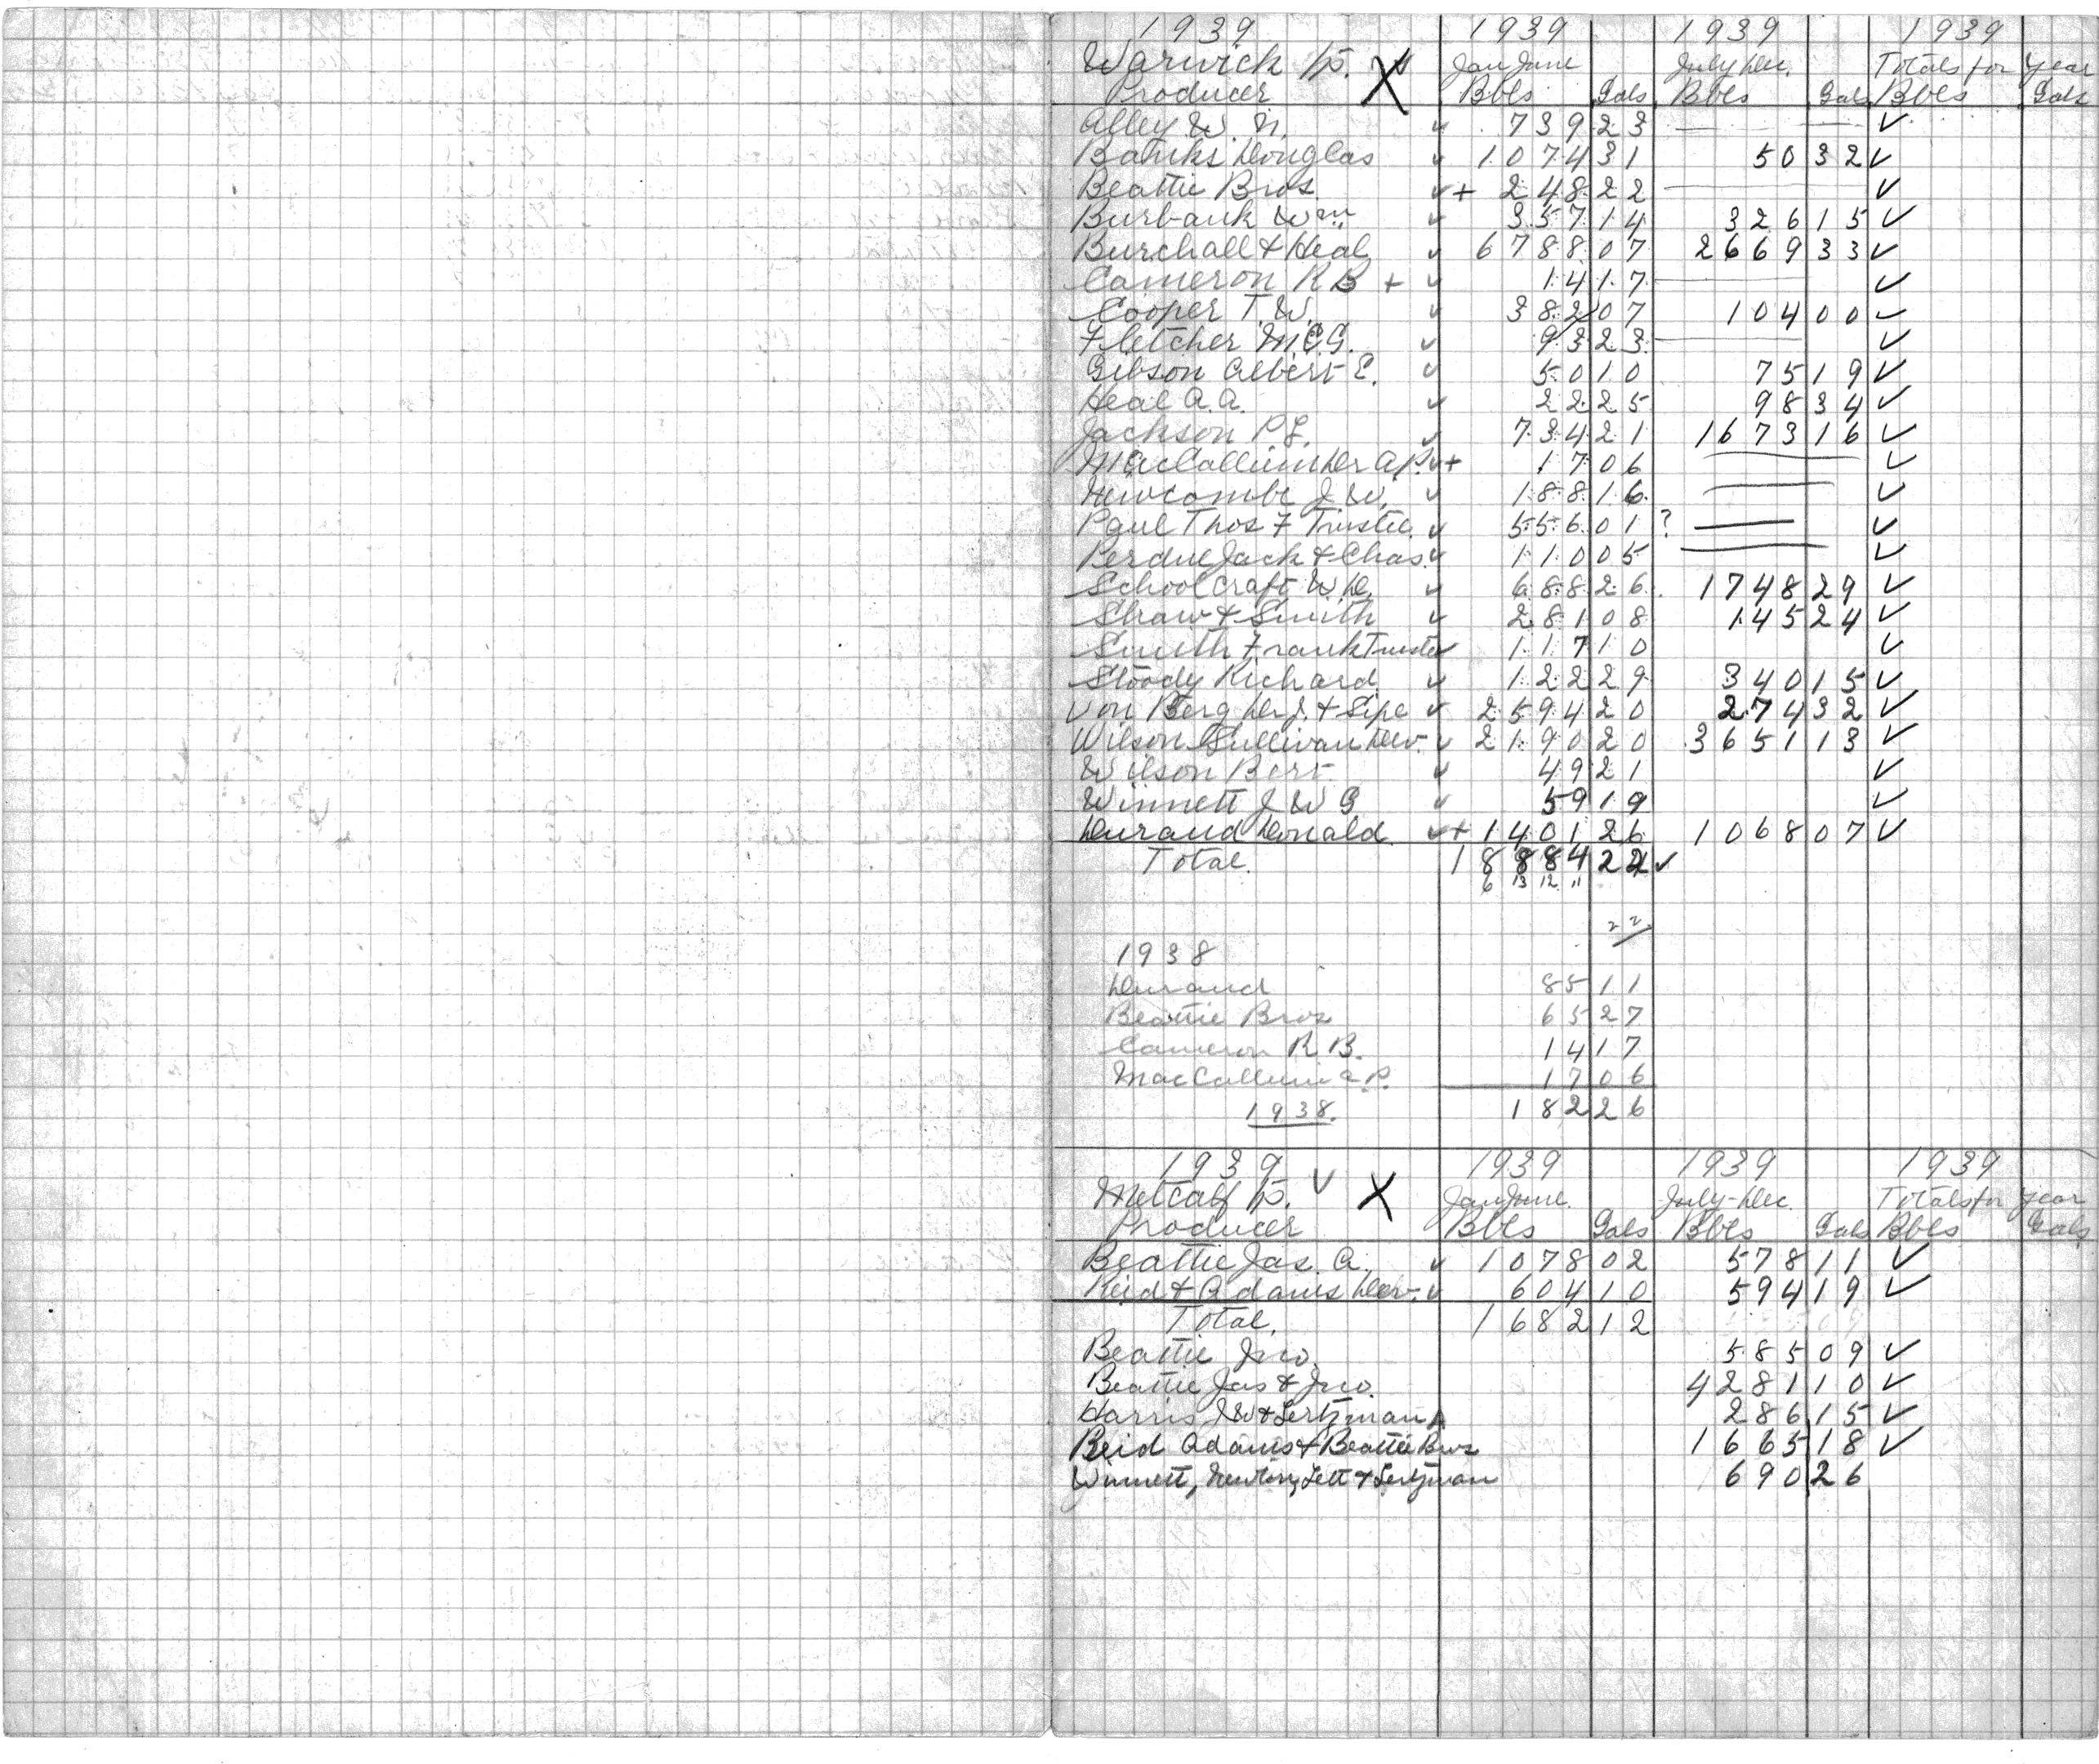 1939 1939 1939 1939
Warwick Tp. ✓ X Jan June July Dec. Totals for Year
Producer Bbls Gals Bbls Gals Bbls Gals
Alley W. N. ✓ 739 23 — — ✓
Banks Douglas ✓ 1074 31 50 32 ✓
Beattie Bros ✓ + 248 22 — ✓
Burbank Wm ✓ 357 14 326 15 ✓
Burchall & Heal ✓ 6788 07 2669 33 ✓
Cameron R B + ✓ 14 17 — ✓
Cooper T. W. ✓ 382 07 104 00 ✓
Fletcher McG. ✓ 93 23 — ✓
Gibson Albert E. ✓ 50 10 75 19 ✓
Heal A. A. ✓ 22 25 98 34 ✓
Jackson P. L. ✓ 734 21 1673 16 ✓
MacCallum Dr A.P. ✓ + 17 06 — ✓
Newcombe J. W. ✓ 188 16 — ✓
Paul Thos F Trustee ✓ 556 01 ? — ✓
Perdue Jack & Chas. ✓ 110 05 — ✓
Schoolcraft W. D. ✓ 688 26 1748 29 ✓
Shaw & Smith ✓ 281 08 145 24 ✓
Smith Frank Trustee ✓ 117 10 ✓
Stoody Richard ✓ 122 29 340 15 ✓
Von Berg Dr J. & Sipe ✓ 2594 20 274 32 ✓
Wilson Sullivan Dev. ✓ 2190 20 3651 13 ✓
Wilson Bert ✓ 49 21 ✓
Winnett J W G ✓ 59 19 ✓
Durand Donald ✓ + 1401 26 1068 07 ✓
Total 18884 22 ✓
6 13 12 11
22
1938
Durand 85 11
Beattie Bros 65 27
Cameron R. B. 14 17
MacCallum A.P. 17 06
1938. 182 26
1939 1939 1939 1939
Metcalf Tp. ✓ X Jan June July-Dec. Totals for Year
Producer Bbls Gals Bbls Gals Bbls Gals
Beattie Jas. A. ✓ 1078 02 578 11 ✓
Reid & Adams Dev. ✓ 604 10 594 19 ✓
Total. 1682 12
Beattie Jno. 585 09 ✓
Beattie Jas & Jno. 4281 10 ✓
Harris JW & Lertzman 286 15 ✓
Reid Adams & Beattie Bros 1665 18 ✓
Winnett, Newton, Lett & Lertzman 690 26